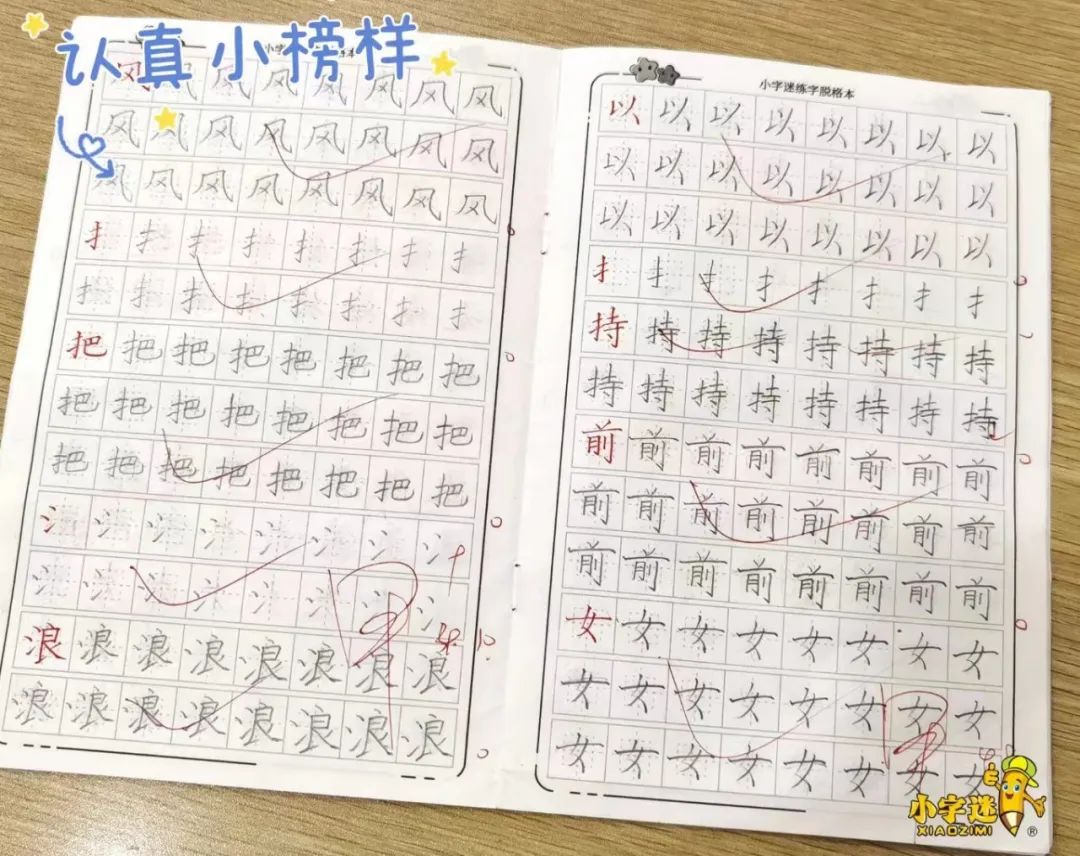 认真小榜样
风 风 风 风 风 风 风 风
风 风 风 风 风 风 风 风
风 风 风 风 风 风 风 风
扌 扌 扌 扌 扌 扌 扌 扌
扌 扌 扌 扌 扌 扌 扌 扌
把 把 把 把 把 把 把 把
把 把 把 把 把 把 把 把
把 把 把 把 把 把 把 把
氵 氵 氵 氵 氵 氵 氵 氵
氵 氵 氵 氵 氵 氵 氵 氵
浪 浪 浪 浪 浪 浪 浪 浪
浪 浪 浪 浪 浪 浪 浪 浪
小字迷练字脱格本
以 以 以 以 以 以 以 以
以 以 以 以 以 以 以 以
以 以 以 以 以 以 以 以
扌 扌 扌 扌 扌 扌 扌 扌
持 持 持 持 持 持 持 持
持 持 持 持 持 持 持 持
前 前 前 前 前 前 前 前
前 前 前 前 前 前 前 前
前 前 前 前 前 前 前 前
女 女 女 女 女 女 女 女
女 女 女 女 女 女 女 女
女 女 女 女 女 女 女 女
小字迷
XIAOZIMI ®